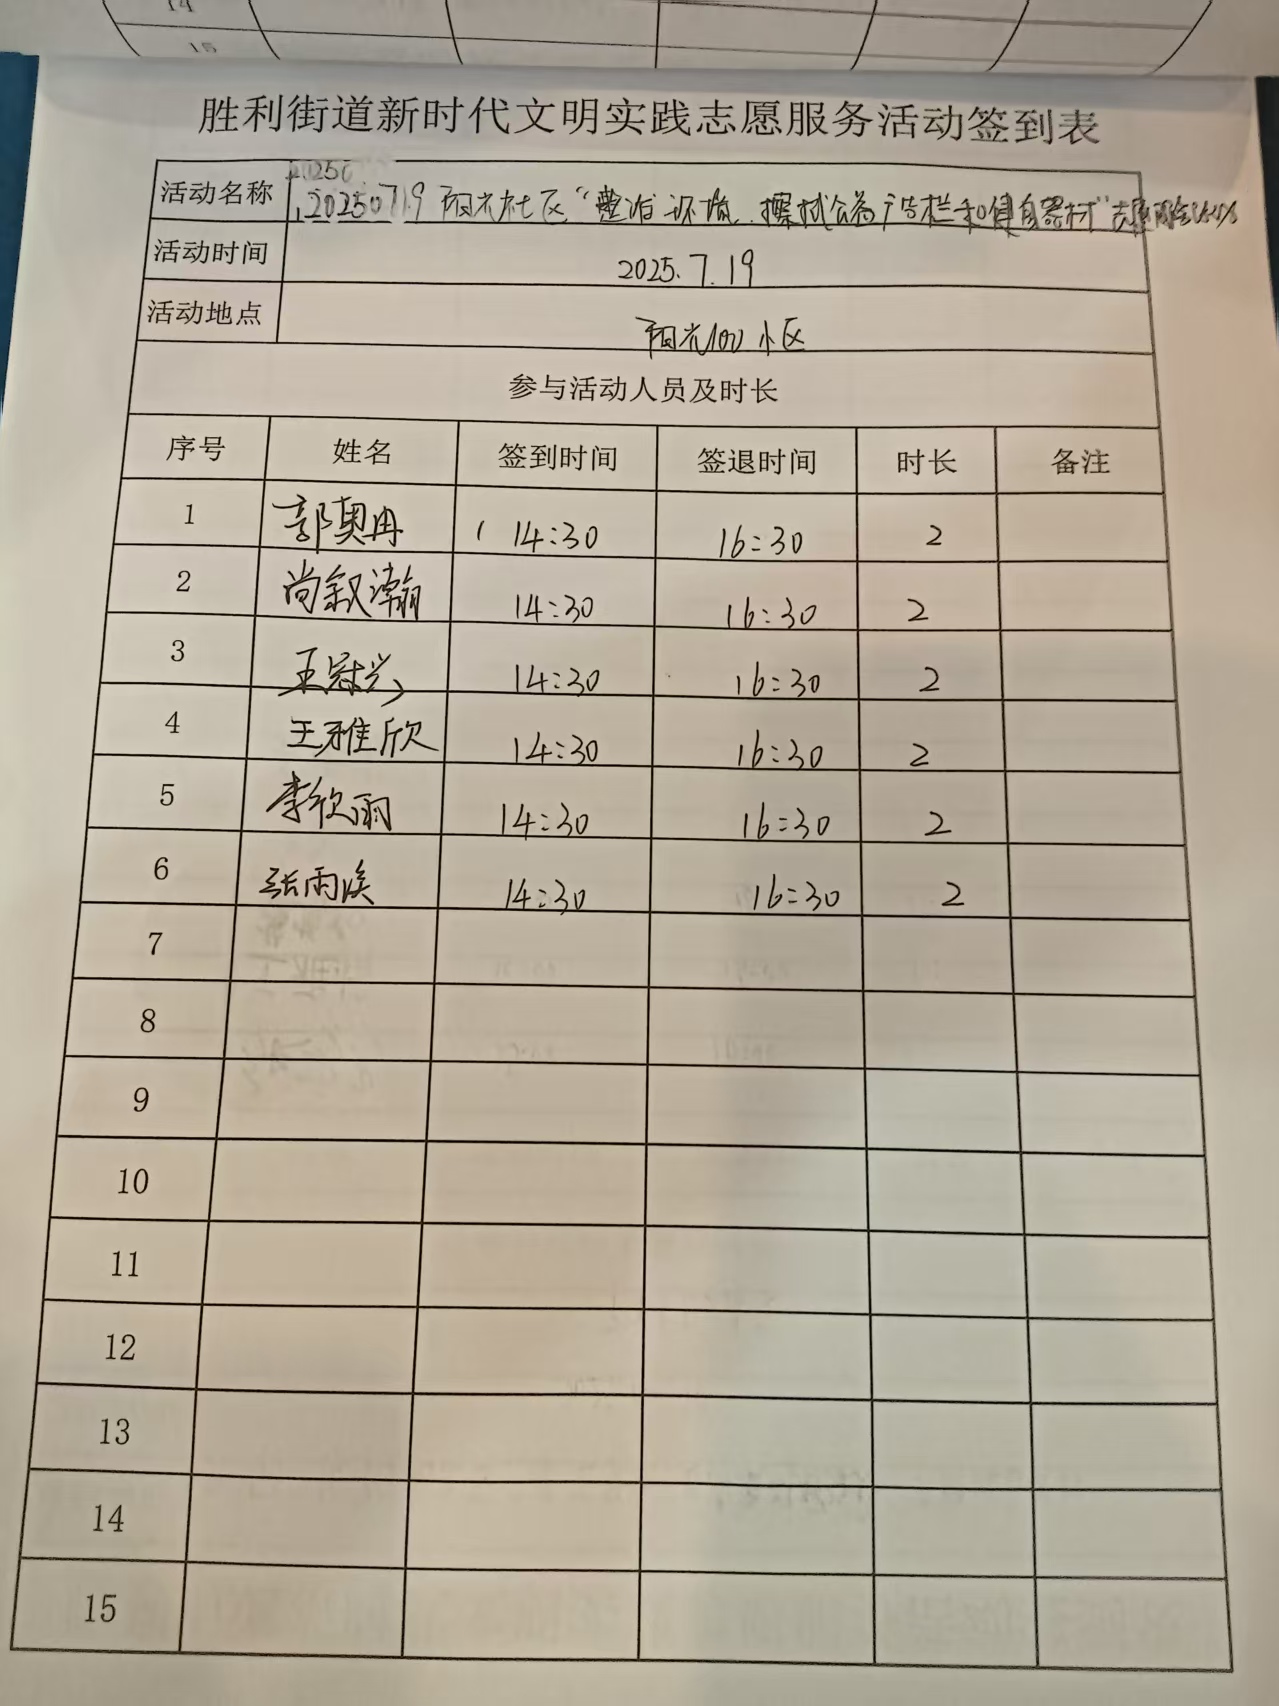 14
15
胜利街道新时代文明实践志愿服务活动签到表
活动名称 20250719 阳光社区“整治环境、擦拭公益广告栏和健身器材”志愿服务活动
活动时间 2025.7.19
活动地点 阳光100小区
参与活动人员及时长
序号 姓名 签到时间 签退时间 时长 备注
1 郭奥冉 14:30 16:30 2
2 尚叙瀚 14:30 16:30 2
3 王冠兴 14:30 16:30 2
4 王雅欣 14:30 16:30 2
5 李欣雨 14:30 16:30 2
6 张雨溪 14:30 16:30 2
7
8
9
10
11
12
13
14
15